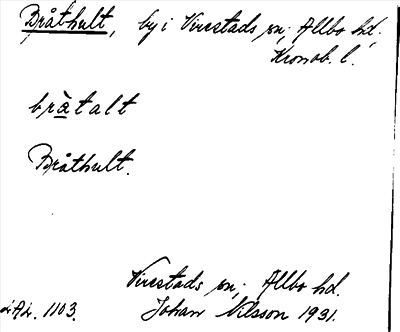 Bråthult, by i Virestads sn; Allbo hd,
Kronob. l.
bràtalt
Bråthult.
Virestads sn; Allbo hd.
LAL. 1103. Johan Nilsson 1931.